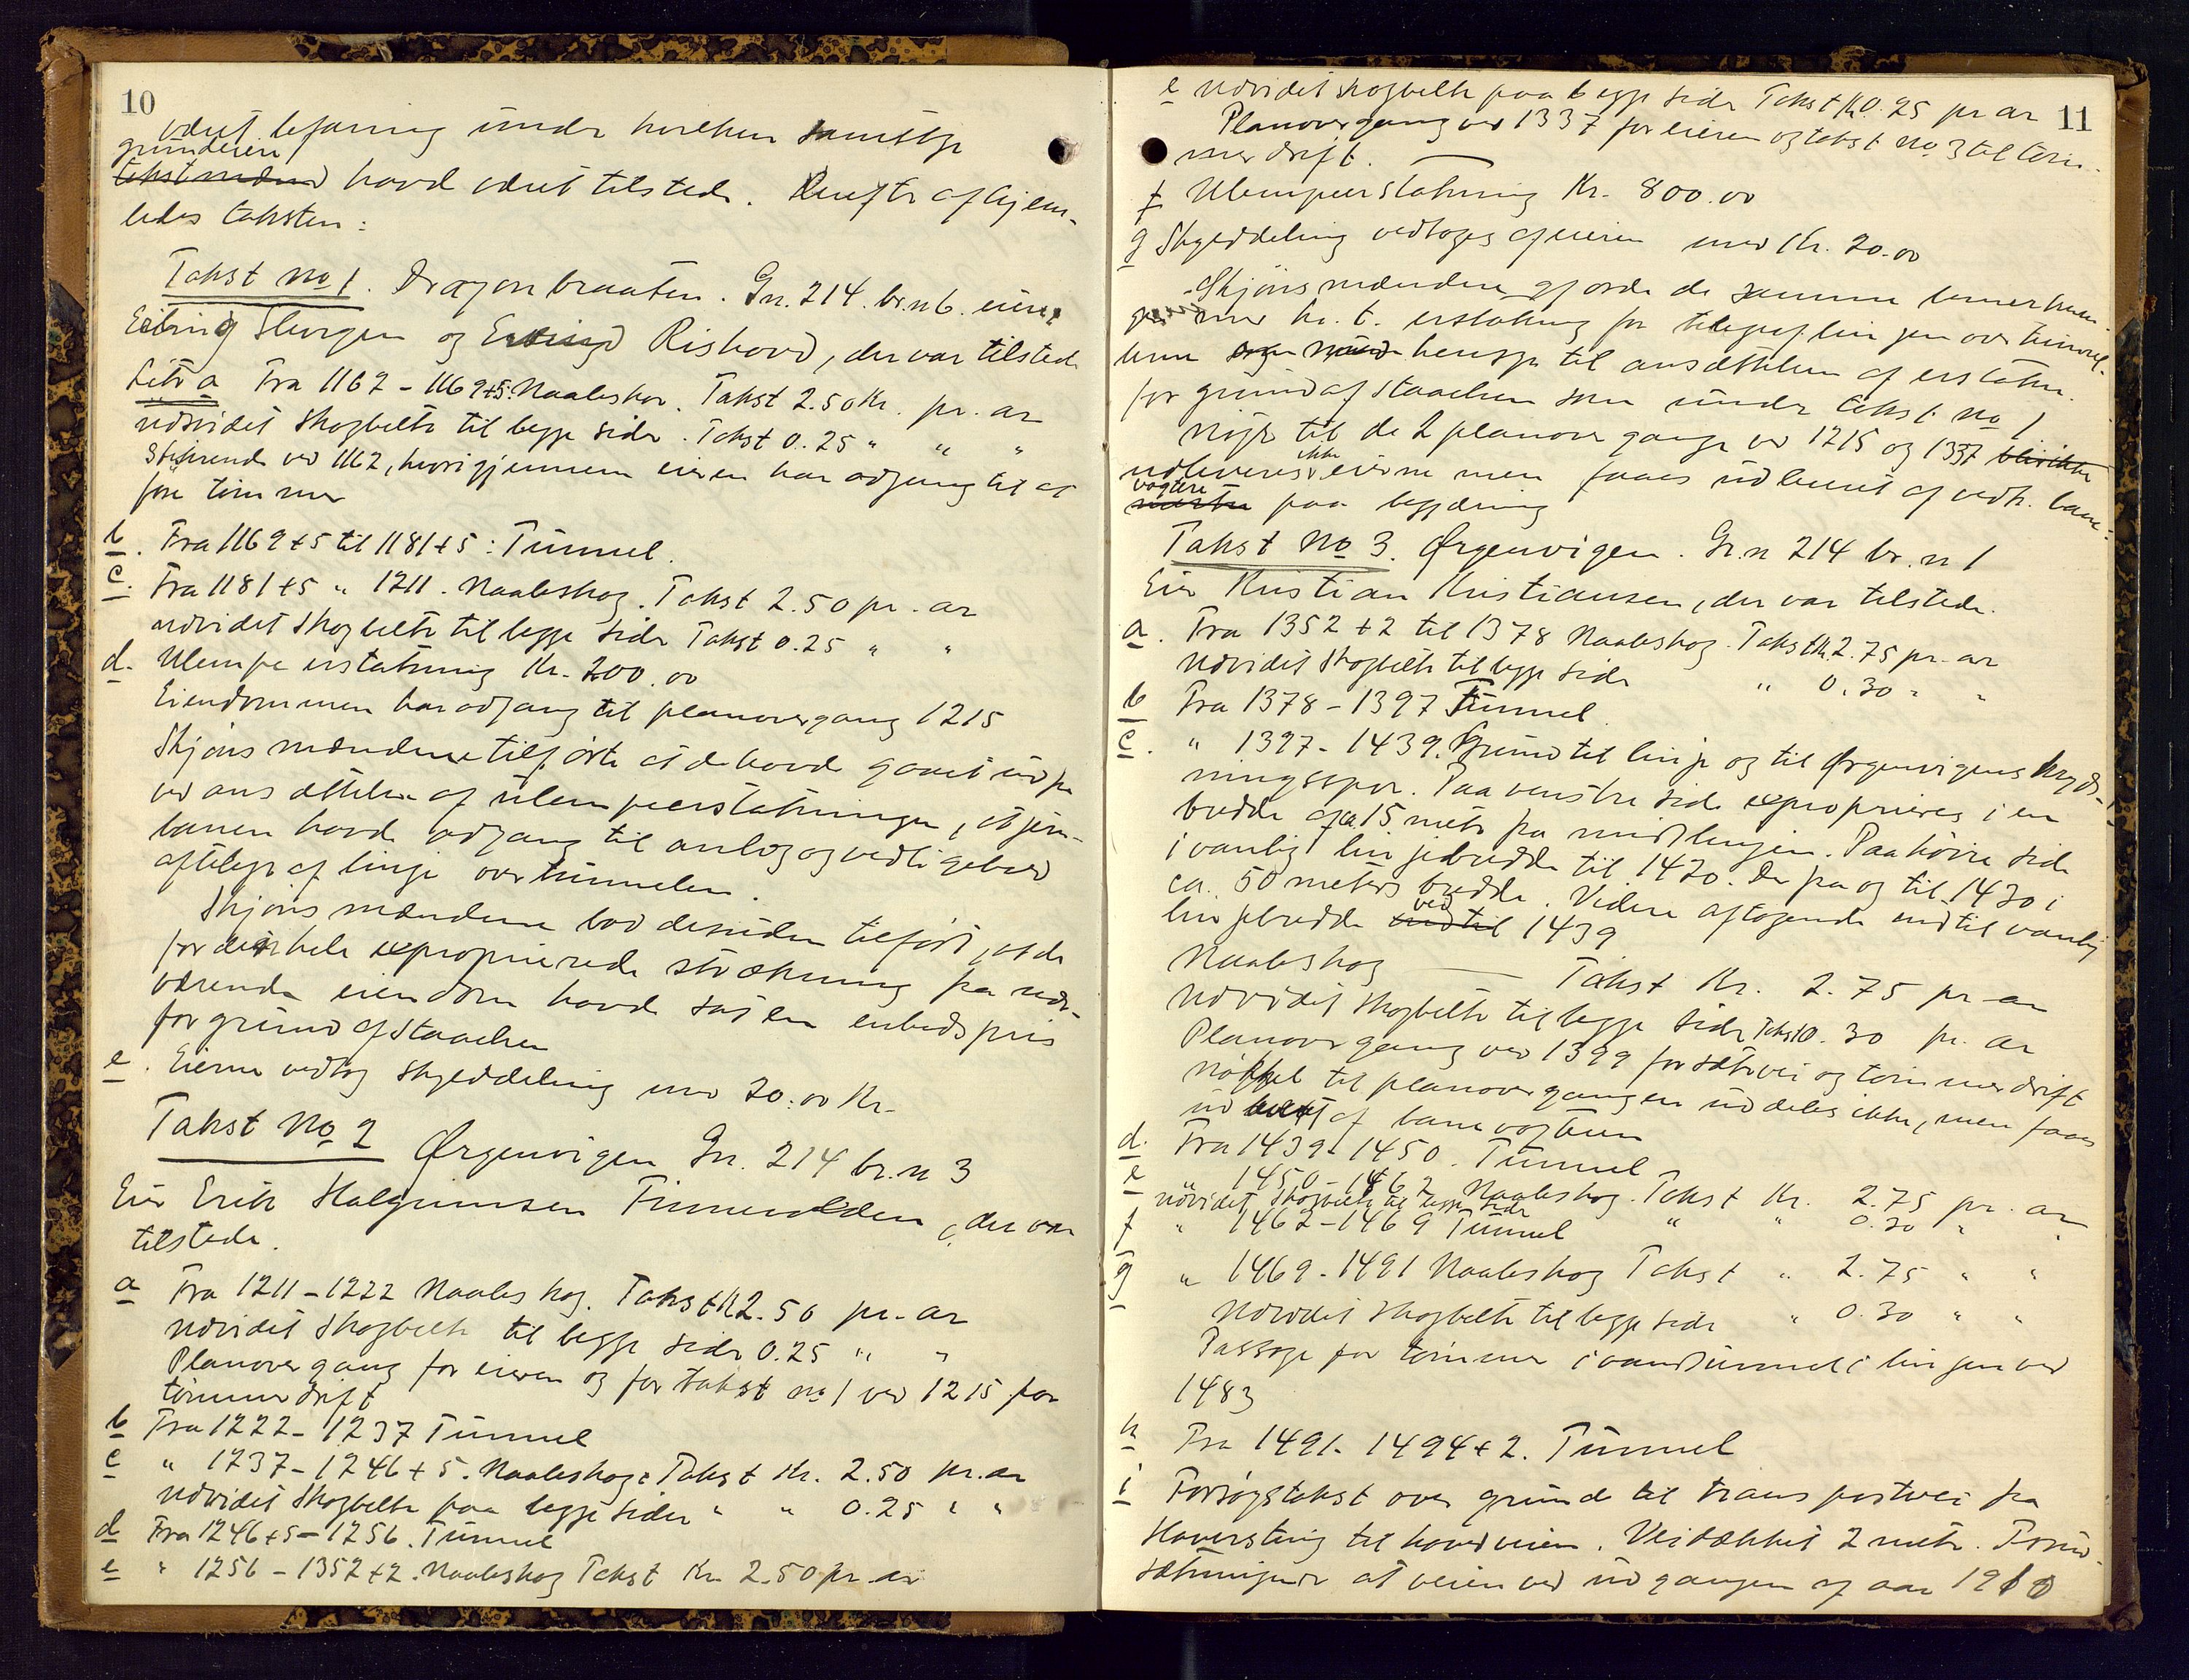 10
været befaring under hvilken samtlige
grundeiere
takstmænd havde været tilstede. Derefter afhjem-
ledes taksten:
Takst no 1. Dragonbraaten. Gn. 214. br.n 6. eiere
Elling Skorgen og Rishovd, der var tilstede
Litr a Fra 1162 - 1169+5. Naaleskov. Takst 2.50 Kr. pr. ar
udvidet skogbelte til begge sider. Takst 0.25 " " "
Stikrende ved 1162, hvorigjennem eieren har adgang til at
føre tømmer
b. Fra 1169+5 til 1181+5: Tunnel.
c. Fra 1181+5 " 1211. Naaleskog. Takst 2.50 pr. ar
udvidet skogbelte til begge sider Takst 0.25 " "
d. Ulempeerstatning Kr. 200.00
Eiendommen har adgang til planovergang 1215
Skjønsmændene tilførte at de havde gaaet ud fra
ved ansættelse af ulempeerstatningen, at jern-
banen havde adgang til anlæg og vedligehold
af telegraf linje over tunnelen.
Skjønsmændene bad desuden tilført, at de
for den hele exproprierede strækning fra nær-
værende eiendom havde sat en enhedspris
for grund af Staaelsen
e. Eierne vedtog skylddeling mod 20.00 Kr.
Takst No 2 Ørgenvigen Gn. 214 br.n 3
Eier Erik Halgrimsen Finnevolden, der var
tilstede.
a Fra 1211 - 1222 Naaleskog. Takst Kr 2.50 pr. ar
Udvidet skogbelte til begge sider 0.25 " "
Planovergang for eieren og for takst no 1 ved 1215 for
tømmerdrift
b Fra 1222 - 1237 Tunnel
c " 1237 - 1246+5. Naaleskog: Takst Kr. 2.50 pr. ar
Udvidet skogbelte paa begge sider " " 0.25 " "
d Fra 1246+5 - 1256. Tunnel
e " 1256 - 1352+2. Naaleskog Takst Kr 2.50 pr ar
11
e udvidet skogbelte paa begge sider Takst Kr 0.25 pr ar
Planovergang ved 1337 for eieren og takst no 3 til tøm-
merdrift.
f Ulempeerstatning Kr. 800.00
g Skylddeling vedtoges af eieren mod Kr. 20.00
Skjønsmændene gjorde de samme bemerknin-
ger med h. t. erstatning for telegraflinjen over tunnel-
lerne hensyn til ansættelsen af erstatn.
for grund af Staaelsen som under takst no 1
Nøgle til de 2 planovergange ved 1215 og 1337 blir ikke
udleveres ikke eierne men faaes udlaant af vedk. bane-
vogtere paa begjæring
Takst No 3. Ørgenvigen. Gr.n 214 br.n 1
Eier Kristian Kristiansen, der var tilstede.
a. Fra 1352+2 til 1378 Naaleskog. Takst Kr. 2.75 pr. ar
Udvidet Skogbelte til begge sider " 0.30 " "
b Fra 1378 - 1397 Tunnel.
c. " 1397 - 1439. Grund til linje og til Ørgenvigens kryds-
ningsspor. Paa venstre side exproprieres i en
bredde af ca. 15 meter fra midtlinjen. Paa høire side
i vanlig linjebredde til 1420. Derfra og til 1430 i
ca. 50 meters bredde. Videre aftagende indtil vanlig
linjebredde indtil ved 1439
Naaleskog — Takst Kr. 2.75 pr ar
Udvidet skogbelte til begge sider Takst 0.30 pr. ar
Planovergang ved 1399 for sætervei og tømmerdrift
Nøkkel til planovergangen uddeles ikke, men faaes
ud laant af banevogteren
d. Fra 1439 - 1450. Tunnel
e " 1450 - 1462 Naaleskog. Takst Kr. 2.75 pr. ar
udvidet Skogbelte til begge sider " " 0.30 " "
f " 1462 - 1469 Tunnel
g " 1469 - 1491 Naaleskog Takst " 2.75 " "
Udvidet skogbelte til begge sider " 0.30 " "
Passage for tømmer i vandtunnel i linjen ved
1483
h Fra 1491 - 1494+2. Tunnel
i Forsøgstakst over grund til transportvei fra
Haversting til hovedveien. Veidækket 2 metr. Forud-
sætningen er at veien ved udgangen af aar 1910